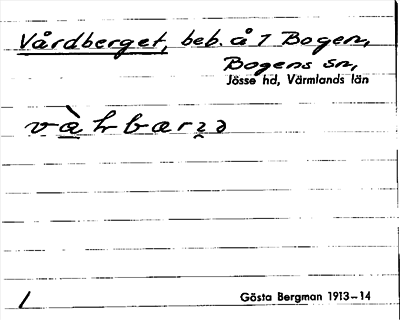 Vårdberget, beb. å 1 Bogen,
Bogens sn,
Jösse hd, Värmlands län
Gösta Bergman 1913–14